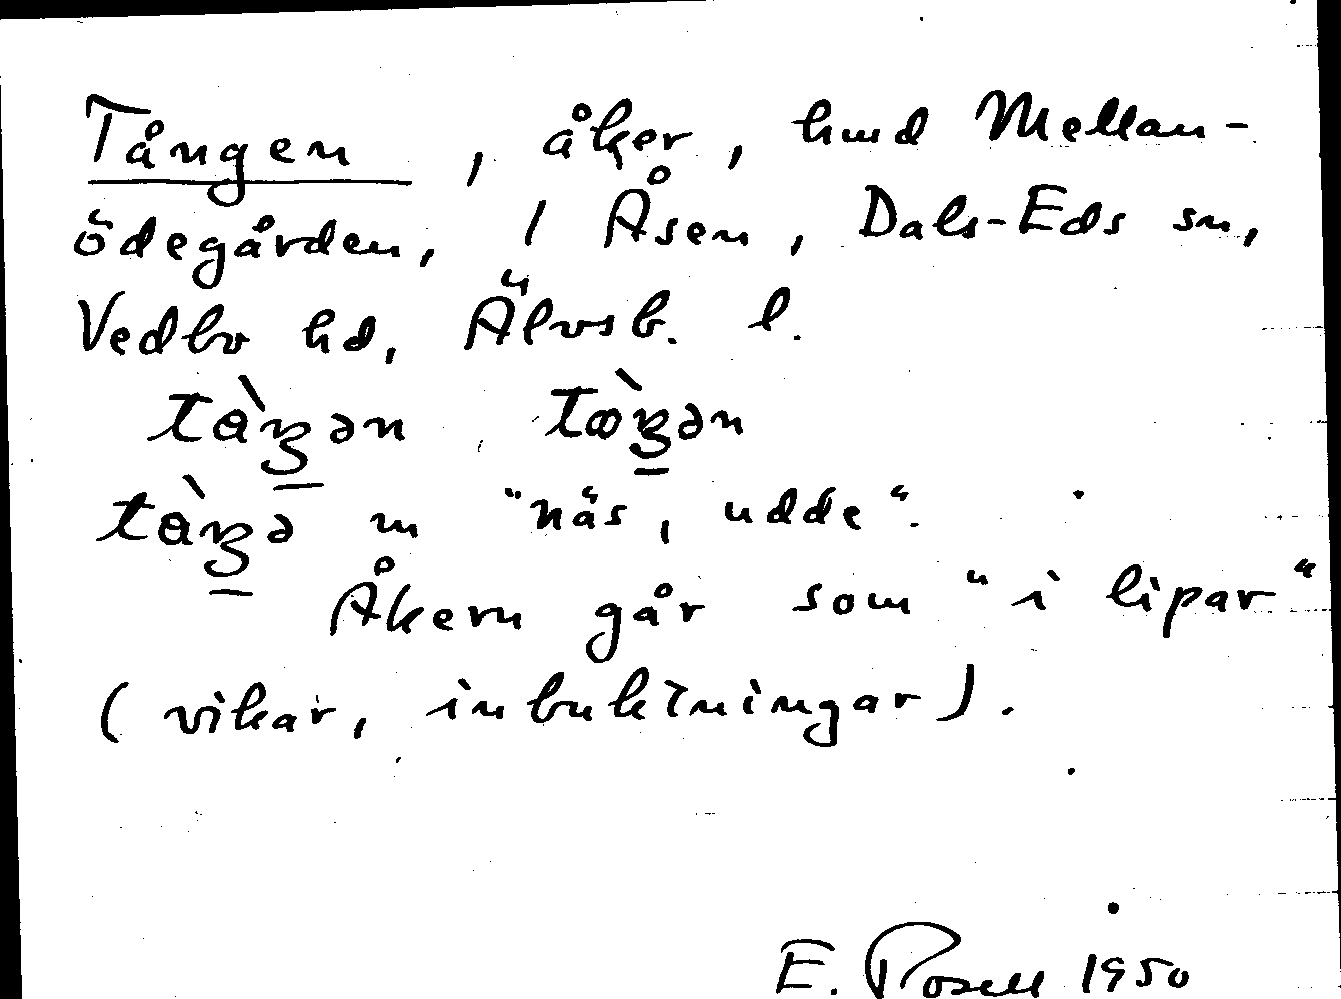 Tången, åker, hmd Mellan-
ödegården, 1 Åsen, Dals-Eds sn,
Vedbo hd, Älvsb. l.
"näs, udde".
Åkern går som "i lipar"
(vikar, inbuktningar).
E. Rosell 1950